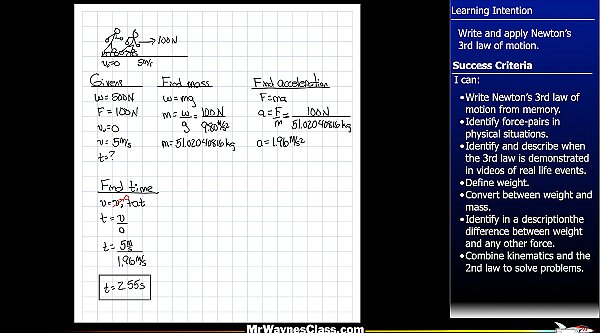 →100N
v₀=0 5m/s
Givens
w=500N
F=100N
v₀=0
v=5m/s
t=?
Find mass
w=mg
m=w/g=100N/9.80m/s²
m=51.02040816kg
Find acceleration
F=ma
a=F/m=100N/51.02040816kg
a=1.96m/s²
Find time
v=v₀+at
t=v/a
t=5m/s/1.96m/s²
t=2.55s
Learning Intention
Write and apply Newton's
3rd law of motion.
Success Criteria
I can:
•Write Newton's 3rd law of
motion from memory.
•Identify force-pairs in
physical situations.
•Identify and describe when
the 3rd law is demonstrated
in videos of real life events.
•Define weight.
•Convert between weight and
mass.
•Identify in a descriptionthe
difference between weight
and any other force.
•Combine kinematics and the
2nd law to solve problems.
MrWaynesClass.com